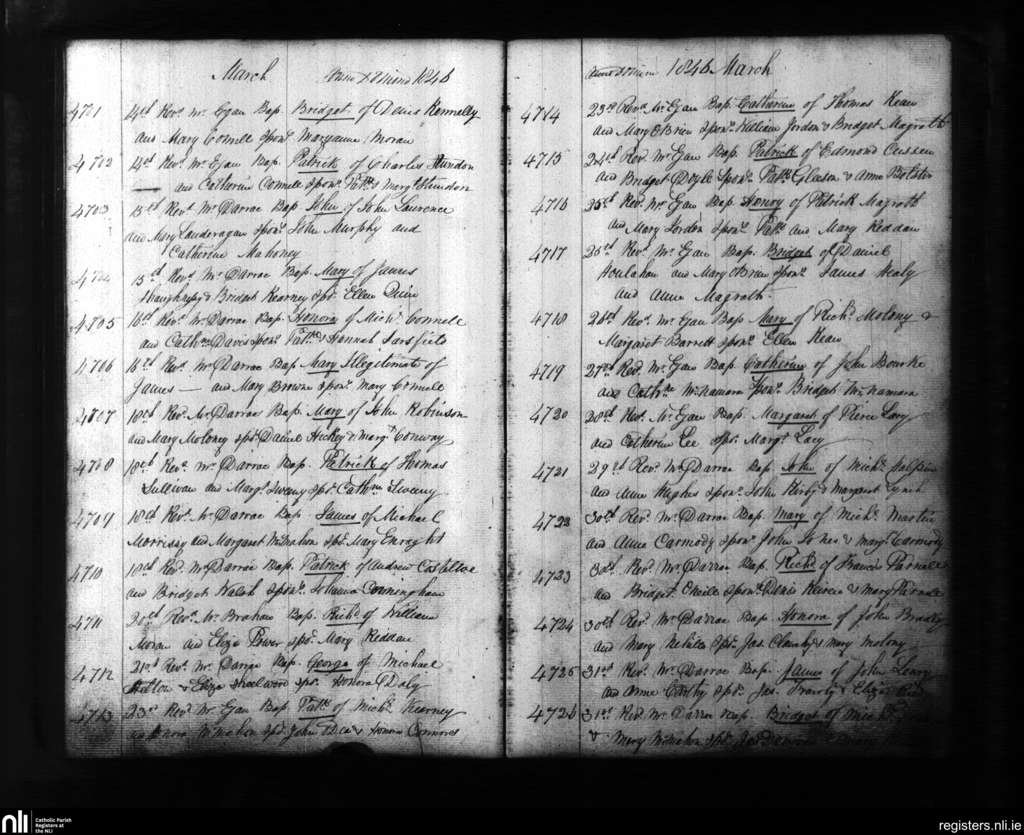 March Anno Domini 1846
4701 14th Revd. Mr. Egan Bap. Bridget of Denis Kennelly
and Mary Connell Sponr. Maryanne Moran
4702 14th Revd. Mr. Egan Bap. Patrick of Charles
and Catherin Connell Sponr. Patk. & Margt.
4703 15th Revd. Mr. Darrac Bap. John of John Laurence
and Mary Londeragan Sponr. John Murphy and
Catherine Mahoney
4704 15th Revd. Mr. Darrac Bap. Mary of James
Shaughnesy & Bridget Kearney Spr. Ellen Quin
4705 16th Revd. Mr. Darrac Bap. Honora of Michl. Connell
and Cathn. Davis Sponr. Patk. & Hannah Sarsfield
4706 16th Revd. Mr. Darrac Bap. Mary Illegitimate of
James — and Mary Browne Sponr. Mary Connell
4707 18th Revd. Mr. Darrac Bap. Mary of John Robinson
and Mary Moloney Spr. Daniel Hickey & Margt. Conway
4708 18th Revd. Mr. Darrac Bap. Patrick of Thomas
Sullivan and Margt. Sweeny Spr. Cathn. Sweeny
4709 18th Revd. Mr. Darrac Bap. James of Michael
Morrissy and Margaret McMahon Spr. Mary Enright
4710 18th Revd. Mr. Darrac Bap. Patrick of Andrew Costelloe
and Bridget Walsh Sponr. Johanna Cunningham
4711 20th Revd. Mr. Brahan Bap. Richd. of William
Moran and Eliza Power Spr. Mary Reddan
4712 21st Revd. Mr. Darrac Bap. George of Michael
Hilton & Eliza Spr. Honora Daly
4713 23rd Revd. Mr. Egan Bap. Patk. of Michl. Kearney
Honora McMahon Spr. John Dea & Honora Connors
Anno Domini 1846 March
4714 23rd Revd. Mr. Egan Bap. Catherine of Thomas Kean
and Mary OBrien Sponr. William Jordon & Bridget Magrath
4715 24th Revd. Mr. Egan Bap. Patrick of Edmond Cussen
and Bridget Doyle Sponr. Patk. Gleeson & Anne Bolster
4716 25th Revd. Mr. Egan Bap. Honory of Patrick Magrath
and Mary Jordon Sponr. Patk. and Mary Reddan
4717 25th Revd. Mr. Egan Bap. Bridget of Daniel
Houlahan and Mary OBrien Sponr. James Healy
and Anne Magrath.
4718 26th Revd. Mr. Egan Bap. Mary of Richd. Molony &
Margaret Barrett Sponr. Ellen Kean
4719 27th Revd. Mr. Egan Bap. Catherine of John Bourke
and Cathn. McNamara Sponr. Bridget McNamara
4720 28th Revd. Mr. Egan Bap. Margaret of Pierce Lacy
and Catherin Lee Spr. Margt. Lacy
4721 29th Revd. Mr. Darrac Bap. John of Michl. Halpin
and Anne Hughes Sponr. John Kirby & Margaret Lynch
4722 30th Revd. Mr. Darrac Bap. Mary of Michl. Martin
and Anne Carmody Sponr. John Jones & Margt. Carmody
4723 30th Revd. Mr. Darrac Bap. Richd. of Francis Parnell
and Bridget Sponr. Denis & Mary Parnell
4724 30th Revd. Mr. Darrac Bap. Honora of John Brady
and Mary Spr. Jas. & Mary Molony
4725 31st Revd. Mr. Darrac Bap. James of John Leary
and Anne Spr. Jas. Frawly & Eliza
4726 31st Revd. Mr. Darrac Bap. Bridget of Michl.
& Mary McMahon Spr.
nli Catholic Parish
Registers at
the NLI
registers.nli.ie